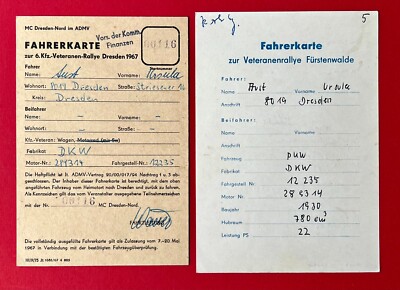 MC Dresden-Nord im ADMV
Vors. der Komm.
Finanzen
FAHRERKARTE
zur 6. Kfz.-Veteranen-Rallye Dresden 1967
Startnummer
00116
Fahrer
Name: Aust Vorname: Ursula
Wohnort: 8019 Dresden Straße: Striesener 16
Kreis: Dresden
Beifahrer
Name: — Vorname: —
Wohnort: — Straße: —
Kfz.-Veteran: Wagen, Motorrad (mit Sw)
Fabrikat: DKW
Motor-Nr.: 284314 Fahrgestell-Nr.: 12235
Die Haftpflicht ist lt. ADMV-Vertrag
erloschen. Der Inhaber dieser Fahrerkarte ist berechtigt, das oben an-
gegebene Fahrzeug vom Heimatort nach Dresden und zurück zu fahren. Als
Kennzeichen am Fahrzeug gilt die Startnummer
00116
MC Dresden-Nord.
Die vollständig ausgefüllte Fahrerkarte gilt als Zulassung vom 7.–20. Mai
1967 in Verbindung mit der bestätigten Fahrzeugüberprüfung.
5
Fahrerkarte
zur Veteranenrallye Fürstenwalde
Fahrer:
Name Aust Vorname Ursula
Anschrift 8019 Dresden
Beifahrer:
Name Vorname
Anschrift
Fahrzeug PKW
Fabrikat DKW
Fahrgestell Nr. 12 235
Motor Nr. 284314
Baujahr 1930
Hubraum 780 cm³
Leistung PS 22